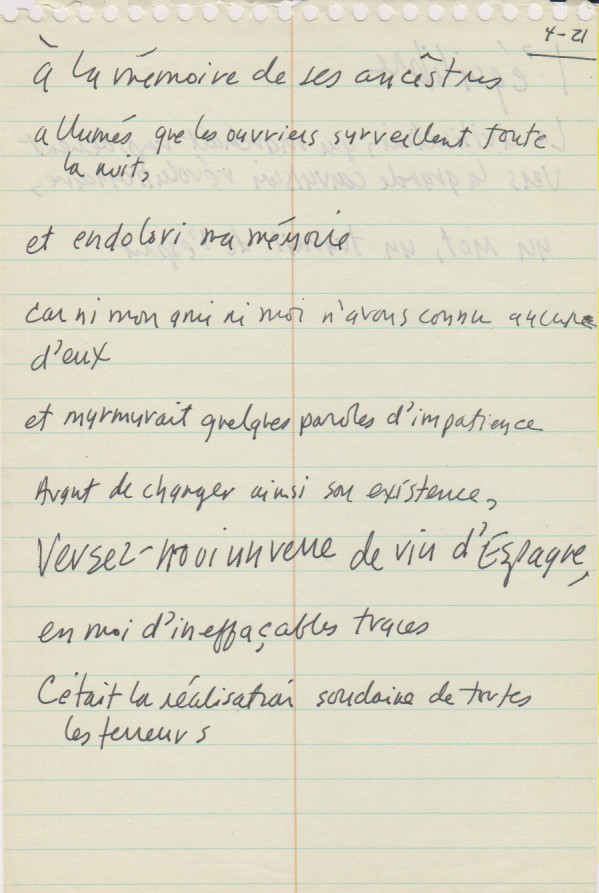 4-21
à la mémoire de ses ancêstres
allumés que les ouvriers surveillent toute
la nuit,
et endolori ma mémoire
car ni mon ami ni moi n'avons connu aucune
d'eux
et murmurait quelques paroles d'impatience
Avant de changer ainsi son existence,
Versez-moi un verre de vin d'Espagne,
en moi d'ineffaçables traces
C'était la réalisation soudaine de toutes
les terreurs